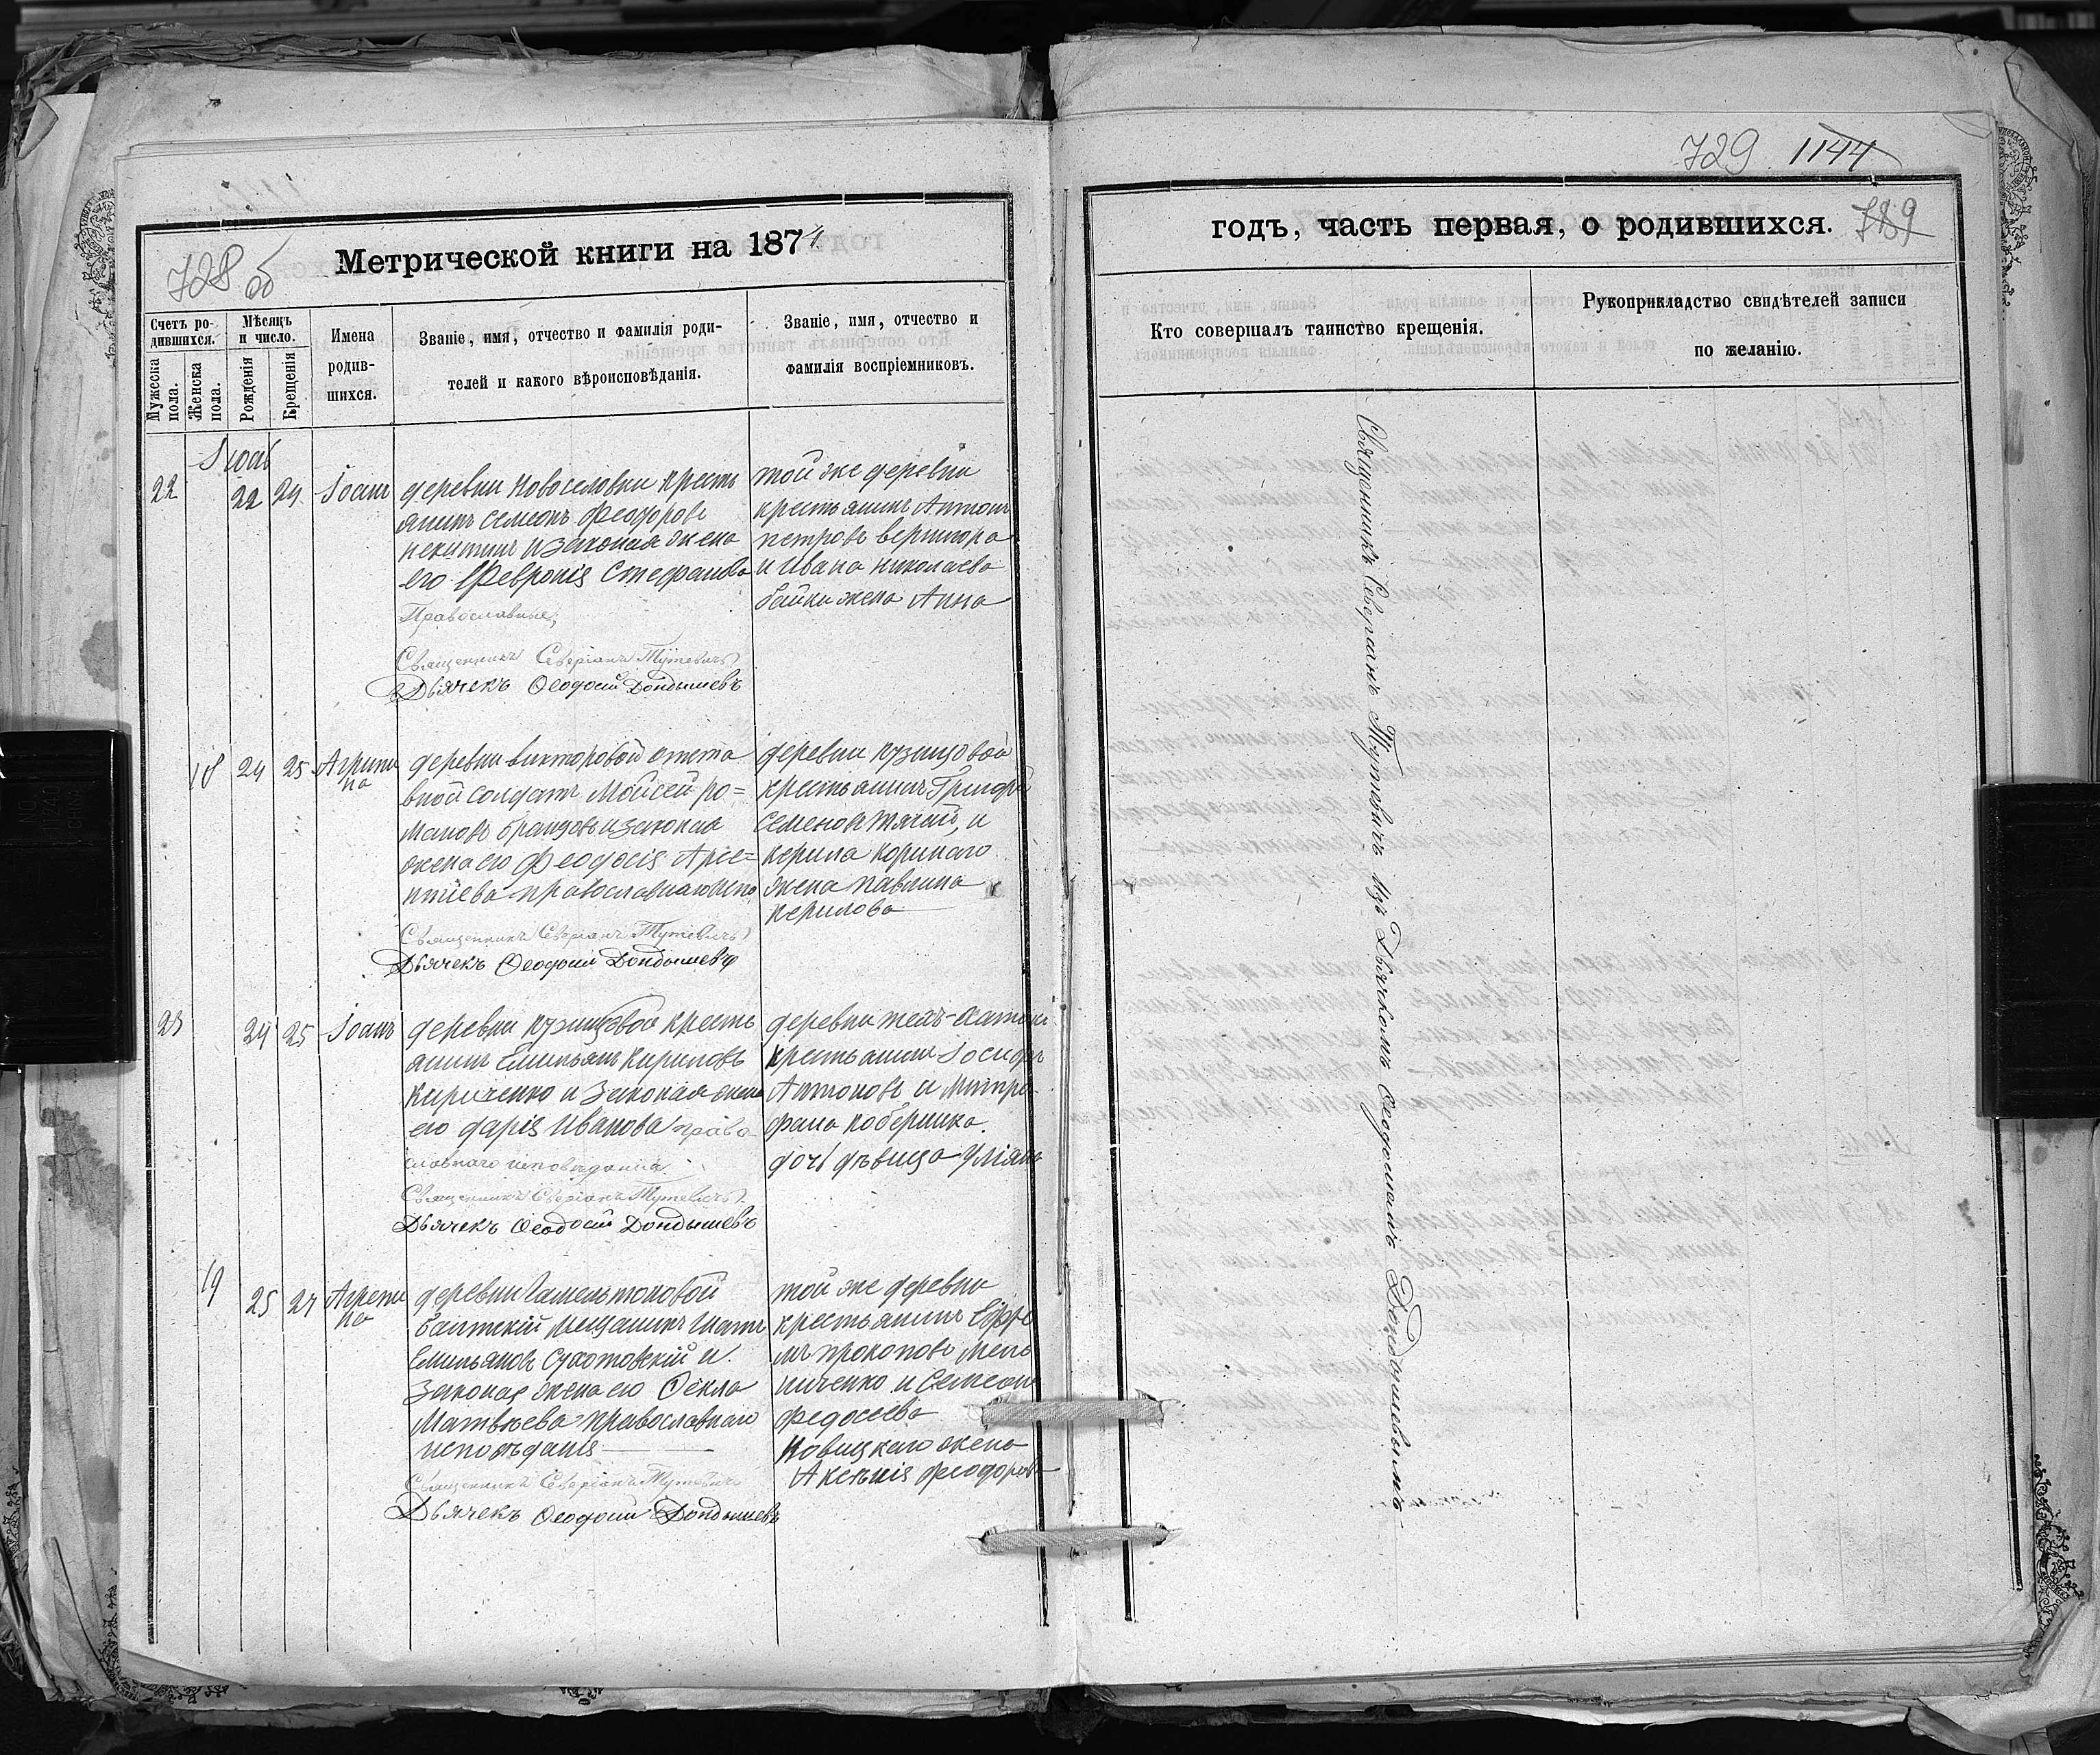 728 об
Метрической книги на 1874
Счетъ ро-
дившихся.
Мѣсяцъ
и число.
Имена
родив-
шихся.
Званіе, имя, отчество и фамилія роди-
телей и какого вѣроисповѣданія.
Званіе, имя, отчество и
фамилія воспріемниковъ.
Мужеска
пола.
Женска
пола.
Рожденія
Крещенія
22
22
24
Іоанъ
деревни Новоселовки кресть
янинъ Семеонъ Феодоровъ
и законая жена
его Февронія Стефанова
Православные,
Священникъ Северіанъ Тутевичъ
Дьячекъ Ѳеодосій Дондышевъ
той же деревни
крестьянинъ Антонъ
петровъ вернигора
и Ивана николаева
байки жена Анна
18
24
25
Агрипи
на
деревни викторовой отста
вной солдатъ Мойсей ро=
мановъ и законая
жена его Феодосія
православнаго
Священникъ Северіанъ Тутевичъ
Дьячекъ Ѳеодосій Дондышевъ
деревни кузнцовой
крестьянинъ Григорій
Семеновъ и
жена павлина
керилова
23
24
25
Іоанъ
деревни кузнцовой кресть
янинъ Емильянъ Кириловъ
Кириченко и Законая жена
его дарія Иванова право
славнаго исповеданія
Священникъ Северіанъ Тутевичъ
Дьячекъ Ѳеодосій Дондышевъ
деревни
крестьянинъ Іосифъ
Антоновъ и Митро
фана
дочь дѣвица Уліяна
19
25
27
Агрепи
на
деревни Гамельтоновой
мещанинъ
Емильяновъ и
Законая жена его Ѳекла
Матвѣева православнаго
исповѣданія
Священникъ Северіанъ Тутевичъ
Дьячекъ Ѳеодосій Дондышевъ
той же деревни
крестьянинъ Ефре
мъ прокоповъ Мель
ниченко и Семеона
федосеева
Новицкаго жена
Аксенія феодорова
729 1144
годъ, часть первая, о родившихся.
Кто совершалъ таинство крещенія.
Рукоприкладство свидѣтелей записи
по желанію.
Священникъ Северіанъ Тутевичъ изъ Дьячкомъ Ѳеодосіемъ Дондышевымъ